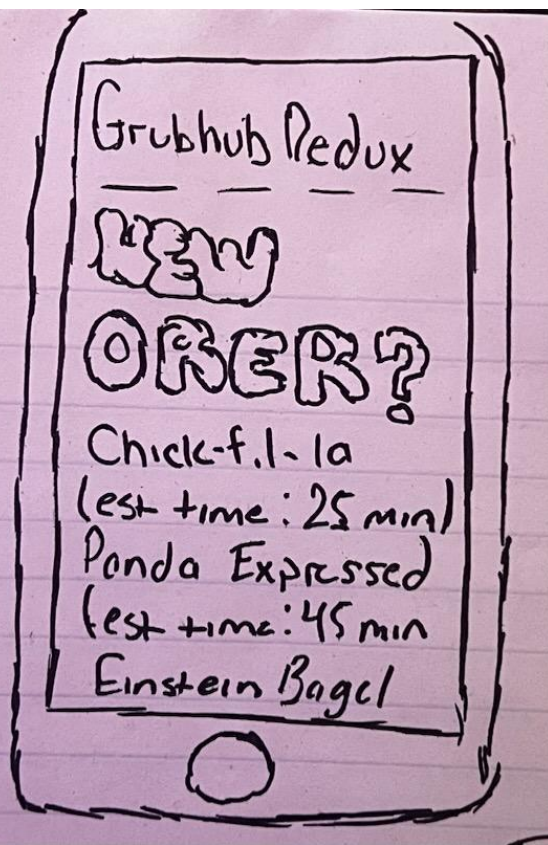 Grubhub Redux
NEW
ORER?
Chick-fil-la
(est time: 25 min)
Panda Expressed
(est time: 45 min
Einstein Bagel